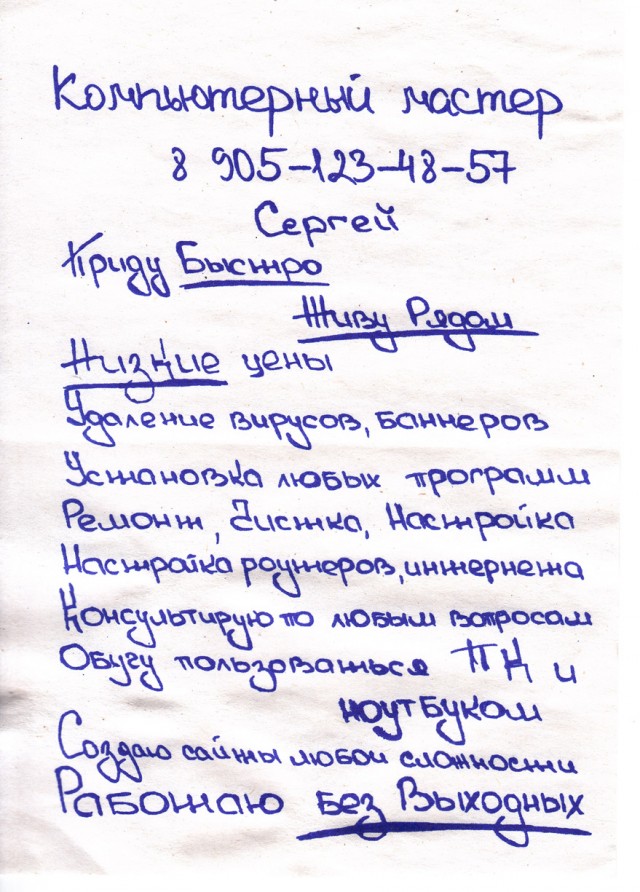 Компьютерный мастер
8 905-123-48-57
Сергей
Приду Быстро
Живу Рядом
Низкие цены
Удаление вирусов, баннеров
Установка любых программ
Ремонт, Чистка, Настройка
Настройка роутеров, интернета
Консультирую по любым вопросам
Обучу пользоваться ПК и
ноутбуком
Создаю сайты любой сложности
Работаю без Выходных